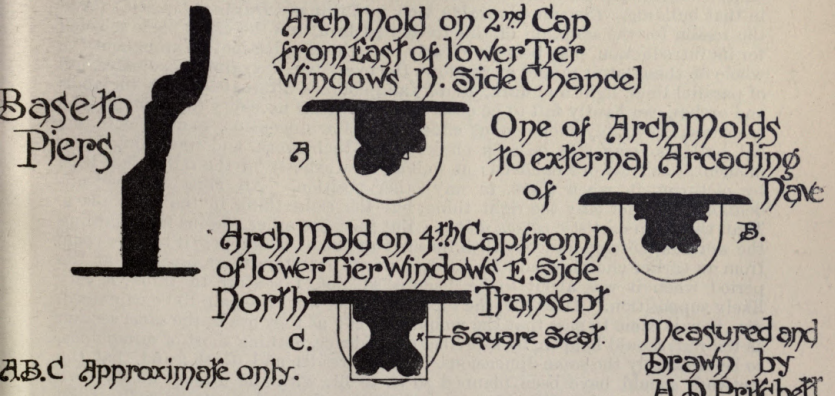 Base to
Piers
Arch Mold on 2nd Cap
from East of lower Tier
Windows N. Side Chancel
A
One of Arch Molds
to external Arcading
of Nave
B.
Arch Mold on 4th Cap from N.
of lower Tier Windows E. Side
North Transept
C.
x Square Seat.
A.B.C Approximate only.
Measured and
Drawn by
H.D. Pritchett